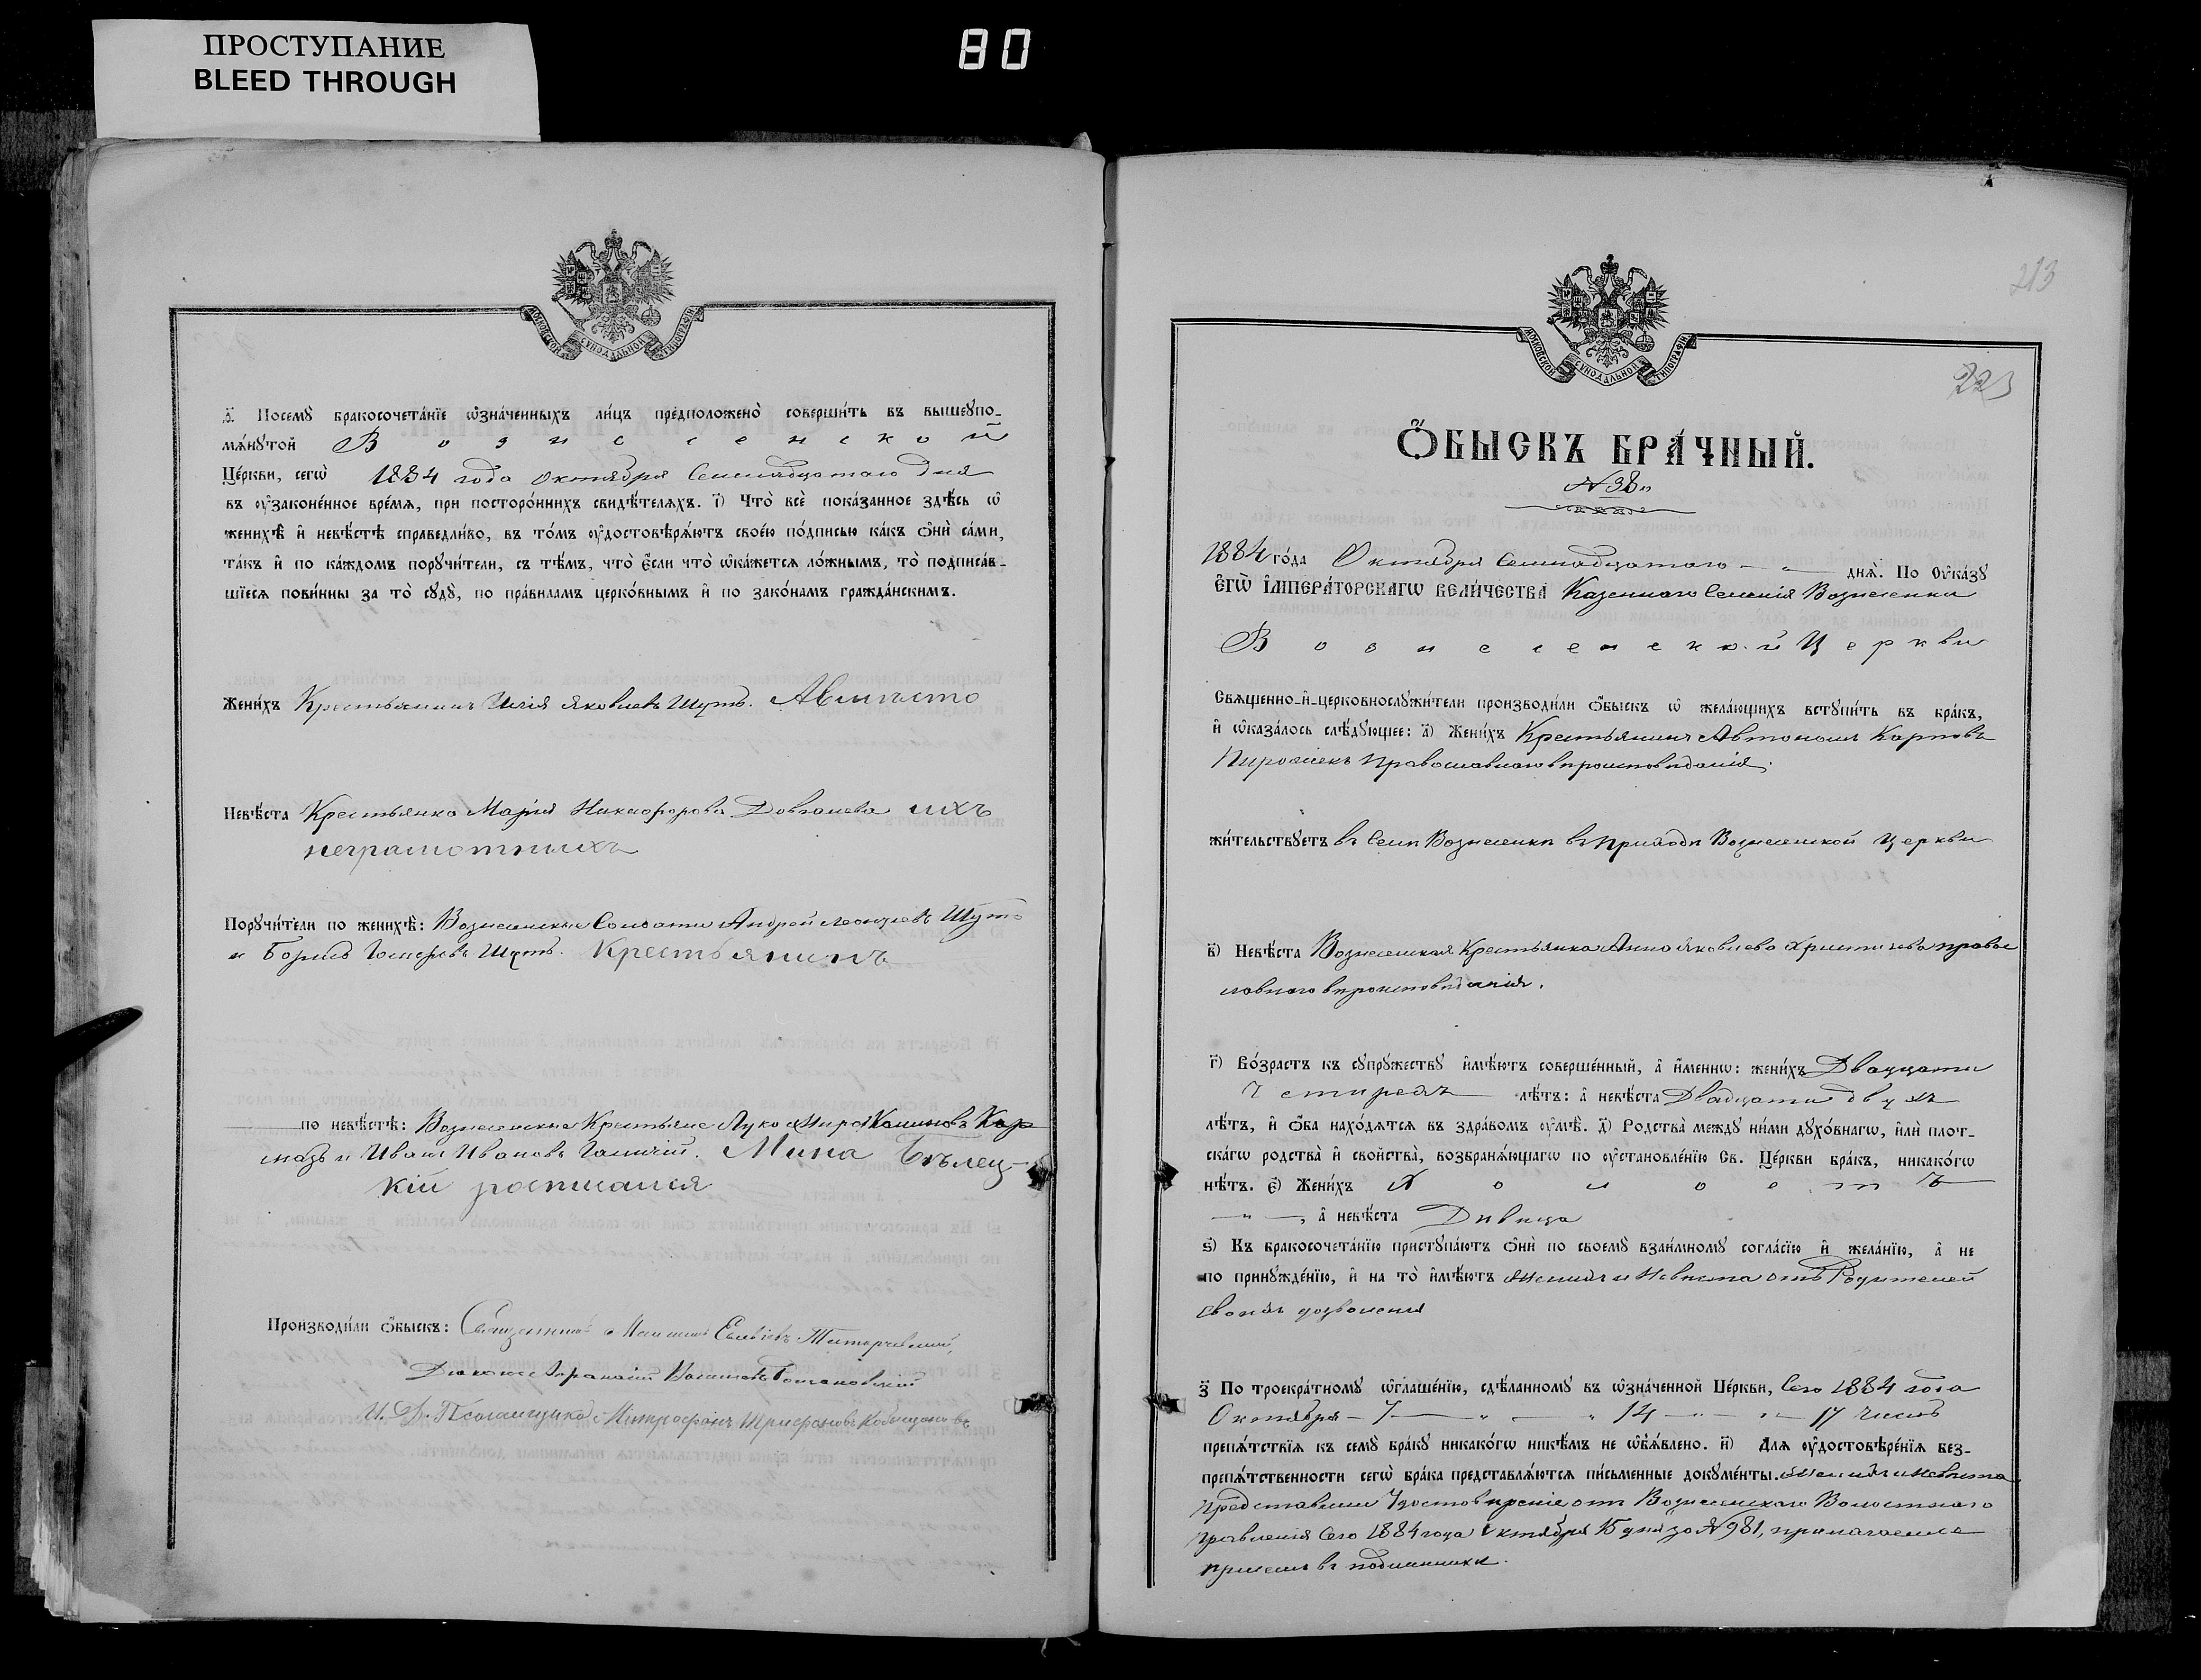 ПРОСТУПАНИЕ
BLEED THROUGH
80
МОСКОВСКОЙ СѴНОДАЛЬНОЙ ТИПОГРАФІИ
д҃. Посемꙋ̀ бракосочета́нїе ѡ҆зна́ченныхъ ли́цъ предположено̀ соверши́ть въ вышеꙋпо-
мѧ́нꙋтой Вознесенской
Це́ркви, сегѡ̀ 1884 года октября Семнадцатаго дня
въ ᲂу҆законе́нное вре́мѧ, при посторо́ннихъ свидѣ́телѧхъ. і҃) Что̀ всѐ пока́занное здѣ́сь ѡ҆
женихѣ̀ и҆ невѣ́стѣ справедли́во, въ то́мъ ᲂу҆достовѣрѧ́ютъ свое́ю по́дписью ка́къ ѻ҆нѝ са́ми,
та́къ и҆ по ка́ждомъ порꙋчи́тели, съ тѣ́мъ, что̀ є҆́сли что̀ ѡ҆ка́жетсѧ ло́жнымъ, то̀ подписа́в-
шїесѧ пови́нны за то̀ сꙋдꙋ̀, по пра́виламъ церко́внымъ и҆ по зако́намъ гражда́нскимъ.
Жени́хъ Крестьянинъ Илія Яковлевъ Шутъ.
Невѣ́ста Крестьянка Марія Никифорова Довгалева ихъ
неграмотныхъ
Порꙋчи́тели по женихѣ̀: Вознесенские Солдаты Андрей Леонтіевъ Шутъ
и Борисъ Шутъ. Крестьянинъ
по невѣ́стѣ: Вознесенские Крестьяне Лука
и Иванъ Ивановъ Галичій. Мина Бѣлец-
кій росписался
Производи́ли ѻ҆́быскъ: Священникъ
Діаконъ
И. Д. Псаломщика Митрофанъ
213
223
Ѻ҆́БЫСКЪ БРА́ЧНЫЙ.
№ 38й
1884 го́да Октября Семнадцатаго днѧ̀. По ᲂу҆ка́зꙋ
Е҆гѡ̀ И҆мпера́торскагѡ Вели́чества Казеннаго Селенія Вознесенки
Вознесенской Церкви
Свѧщенно-и҆-церковнослꙋжи́тели производи́ли ѻ҆́быскъ ѡ҆ жела́ющихъ встꙋпи́ть въ бра́къ,
и҆ ѡ҆каза́лось слѣ́дꙋющее: а҃) Жени́хъ Крестьянинъ Автономъ Карповъ
Пирожекъ Православнаго вѣроисповѣданія.
жи́тельствꙋетъ въ Селѣ Вознесенки въ Приходѣ Вознесенской Церкви
в҃) Невѣ́ста Вознесенская Крестьянка Анна Яковлева православ
славнаго вѣроисповѣданія.
г҃) Во́зрастъ къ сꙋпрꙋ́жествꙋ и҆мѣ́ютъ соверше́нный, а҆ и҆́меннѡ: жени́хъ Двадцати
Четырехъ лѣ́тъ: а҆ невѣ́ста Двадцати двухъ
лѣ́тъ, и҆ ѻ҆́ба нахо́дѧтсѧ въ здра́вомъ ᲂу҆мѣ̀. д҃) Родства̀ междꙋ̀ ни́ми дꙋхо́внагѡ, и҆лѝ пло́т-
скагѡ родства̀ и҆ свойства̀, возбранѧ́ющагѡ по ᲂу҆становле́нїю Св. Це́ркви бра́къ, никако́гѡ
нѣ́тъ. є҃) Жени́хъ Холостъ
, а҆ невѣ́ста Дѣвица
ѕ҃) Къ бракосочета́нїю пристꙋпа́ютъ ѻ҆нѝ по своемꙋ̀ взаи́мномꙋ согла́сїю и҆ жела́нїю, а҆ не
по принꙋжде́нїю, и҆ на то̀ и҆мѣ́ютъ Женихъ и Невѣста отъ Родителей
своихъ дозволенія
з҃ По троекра́тномꙋ ѡ҆глаше́нїю, сдѣ́ланномꙋ въ ѡ҆зна́ченной Це́ркви, Сего 1884 года
Октября – 7 – 14 – 17 Числъ
препѧ́тствїѧ къ семꙋ̀ бра́кꙋ никако́гѡ никѣ́мъ не ѡ҆б̾ѧ́влено. и҃) Длѧ ᲂу҆достовѣре́нїѧ без-
препѧ́тственности сегѡ̀ бра́ка представлѧ́ютсѧ пи́сьменные докꙋме́нты. Женихъ и Невѣста
Представили Удостовѣреніе отъ Вознесенскаго Волостнаго
Правленія Сего 1884 года Октября 15 дня за № 981, прилагаемые
присемъ въ подлинники.